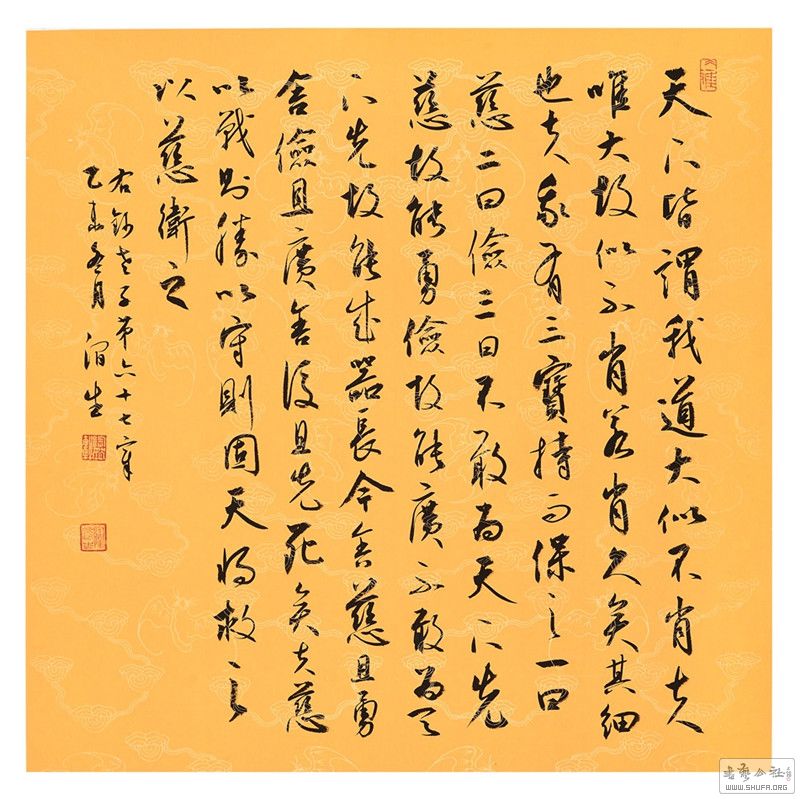 天下皆謂我道大似不肖夫
唯大故似不肖若肖久矣其細
也夫我有三寶持而保之一曰
慈二曰儉三曰不敢為天下先
慈故能勇儉故能廣不敢為天
下先故能成器長今舍慈且勇
舍儉且廣舍後且先死矣夫慈
以戰則勝以守則固天將救之
以慈衛之
右錄老子第六十七章
乙未冬月 生
書藝公社
WWW.SHUFA.ORG